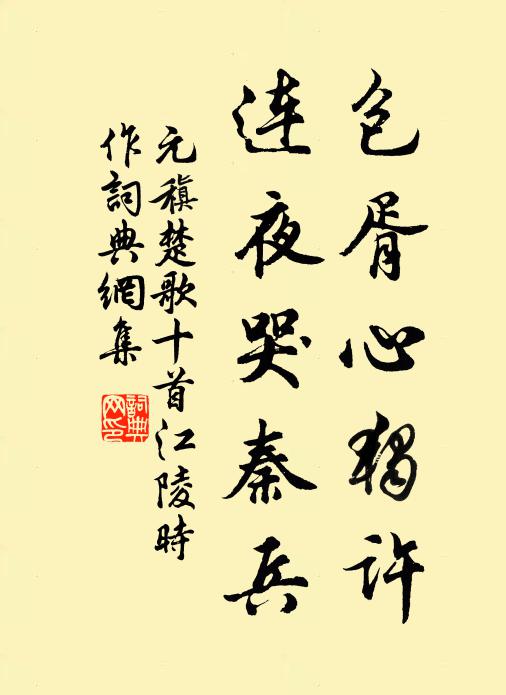 包胥心獨許
連夜哭秦兵
元稹楚歌十首江陵時
作詞典網集
詞典
网印